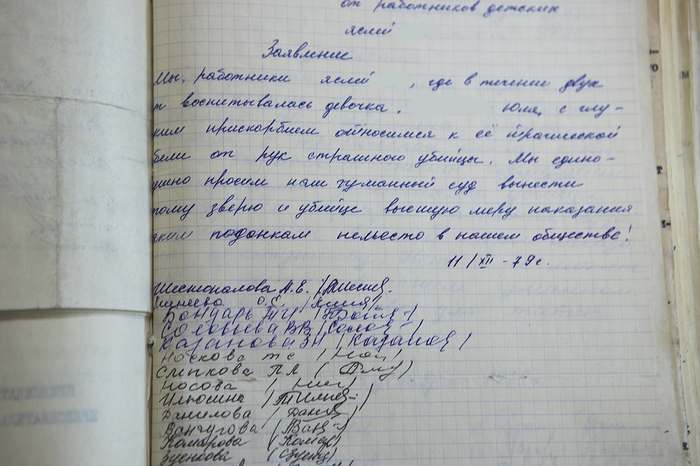 от работников детских
яслей
Заявление
Мы, работники яслей , где в течение двух
т воспитывалась девочка, Юля, с глу-
ким прискорбием относимся к её трагической
бели от рук страшного убийцы. Мы едино-
ушно просим наш гуманный суд вынести
тому зверю и убийце высшую меру наказания
аким подонкам не место в нашем обществе!
11/XII-79г.
Шестопалова А.Е.
О.Е.
Бондарь
Соловьева В.В. (Солов-)
Казанова З.Н. (Казанов)
Носкова (Нос)
Смыкова
Носова
Илюшина
Данилова (Данил)
Ванчугова (Ванч)
Комарова (Комар)
Зуенкова